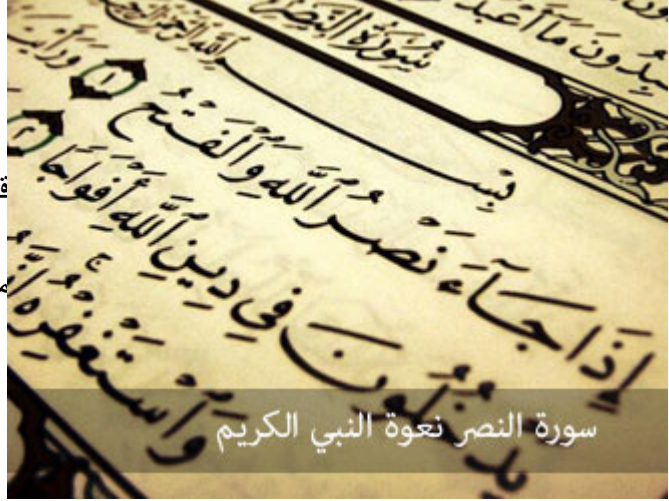 مَآ أَعْبُدُ
سُورَةُ النَّصْرِ
بِسْمِ ٱللَّهِ ٱلرَّحْمَٰنِ ٱلرَّحِيمِ
إِذَا جَآءَ نَصْرُ ٱللَّهِ وَٱلْفَتْحُ ١ وَرَأَيْتَ
يَدْخُلُونَ فِي دِينِ ٱللَّهِ أَفْوَاجًا ٢
وَٱسْتَغْفِرْهُ
سورة النصر نعوة النبي الكريم